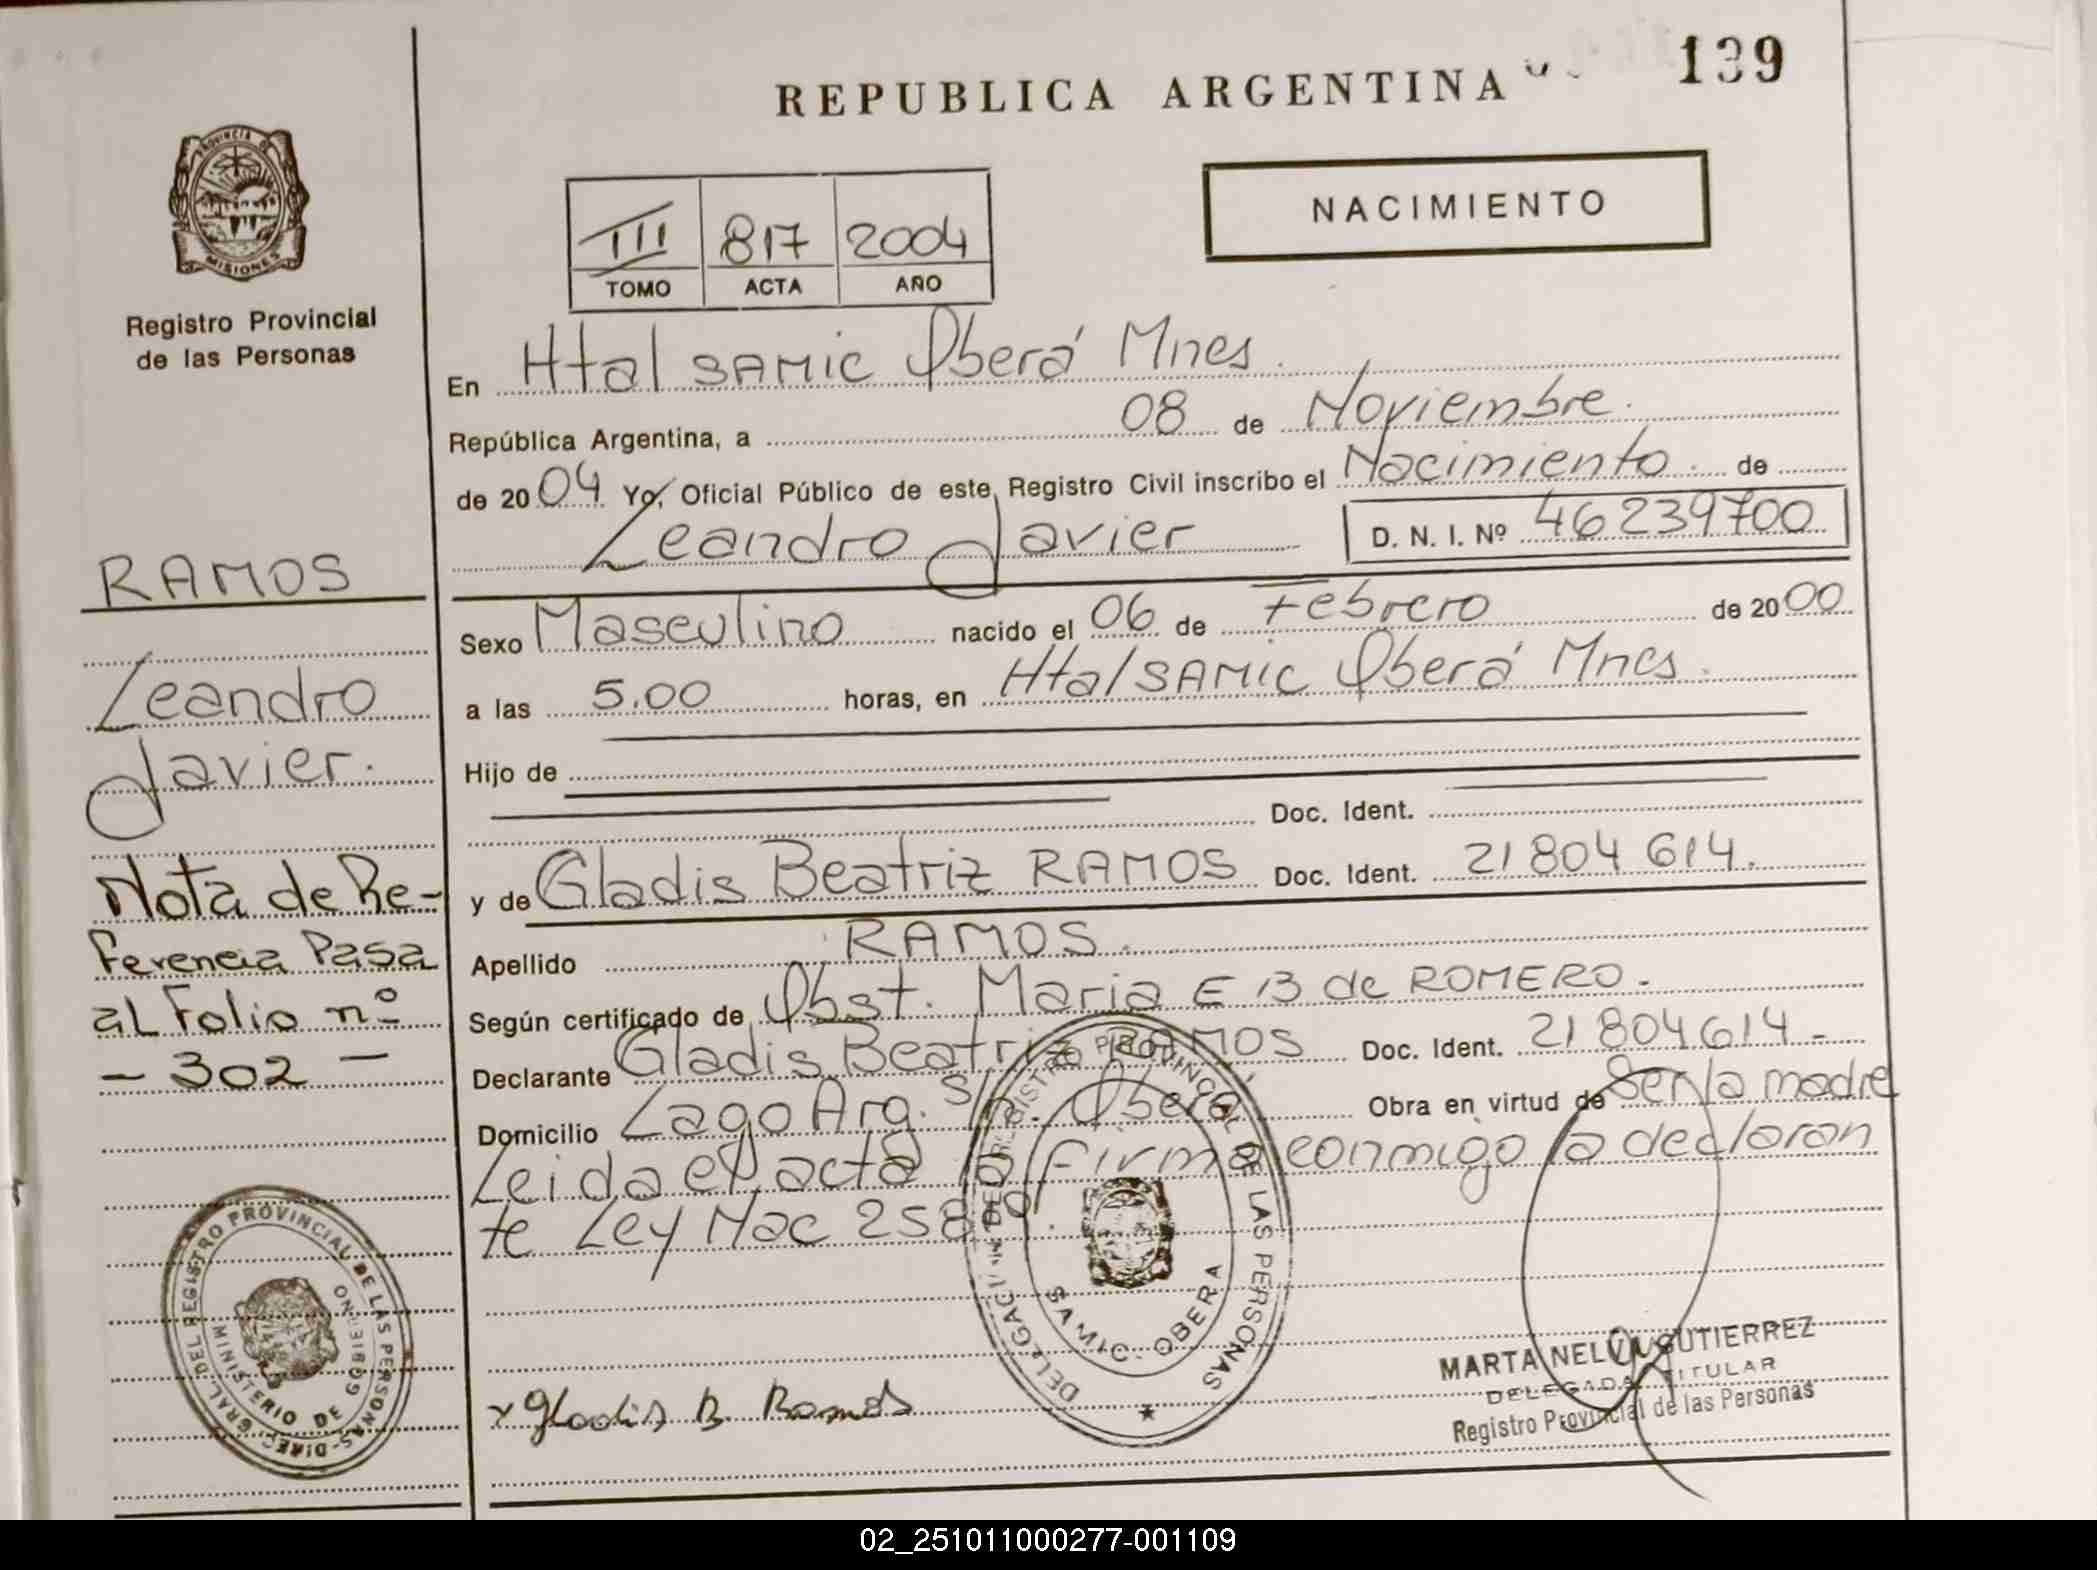 REPUBLICA ARGENTINA
139
PROVINCIA DE
MISIONES
Registro Provincial
de las Personas
NACIMIENTO
III 817 2004
TOMO ACTA AÑO
En Htal SAMIC Oberá Mnes.
República Argentina, a 08 de Noviembre.
de 2004 Yo, Oficial Público de este Registro Civil inscribo el Nacimiento de
Leandro Javier D. N. I. Nº 46239700
Sexo Masculino nacido el 06 de Febrero de 2000
a las 5.00 horas, en Htal SAMIC Oberá Mnes.
Hijo de
Doc. Ident.
y de Gladis Beatriz RAMOS Doc. Ident. 21804614.
Apellido RAMOS.
Según certificado de Obst. Maria E B de ROMERO.
Declarante Gladis Beatriz RAMOS Doc. Ident. 21804614.-
Domicilio Lago Arg. s/n. Oberá Obra en virtud de ser la madre
Leida el acta la firma conmigo la declaran
te Ley Nac
x Gladis B. Ramos
RAMOS
Leandro
Javier.
Nota de Re-
ferencia Pasa
al Folio nº
- 302 -
DIREC. GRAL. DEL REGISTRO PROVINCIAL DE LAS PERSONAS
MINISTERIO DE GOBIERNO
REGISTRO PROVINCIAL DE LAS PERSONAS
SAMIC. OBERA
MARTA GUTIERREZ
DELEGADA TITULAR
Registro Provincial de las Personas
02_251011000277-001109